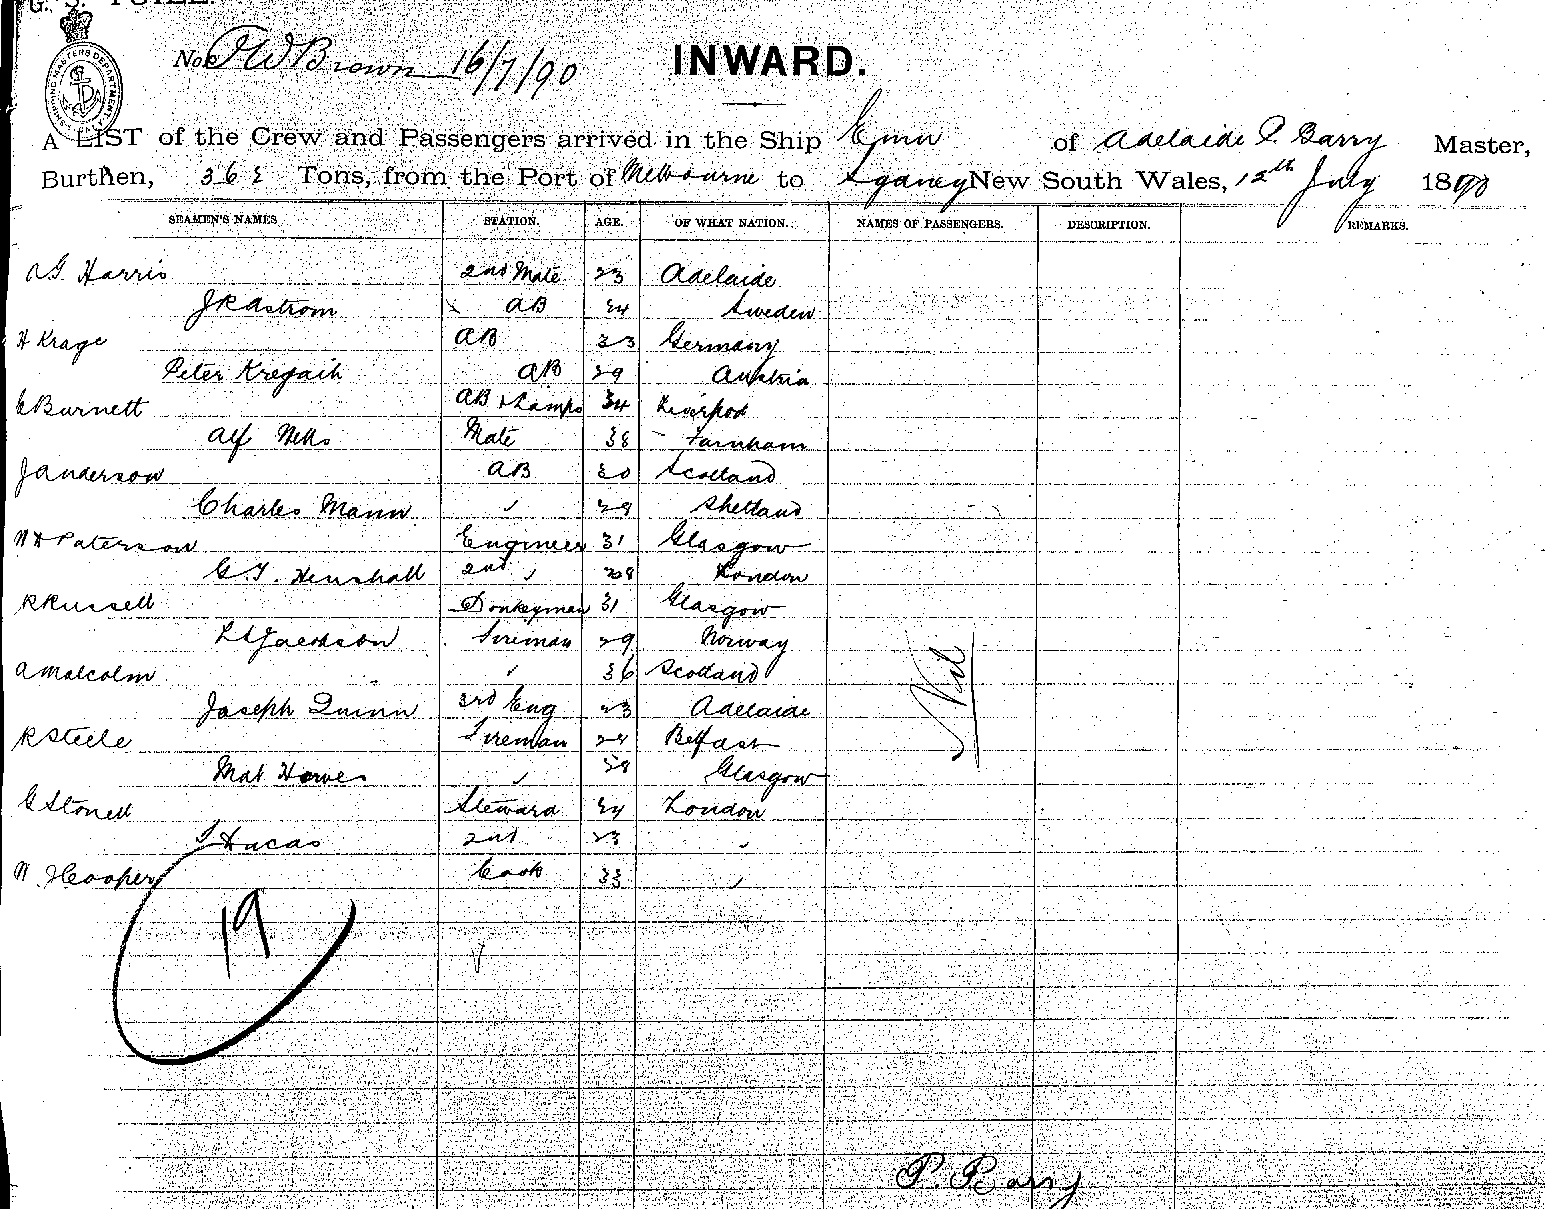 No PW Brown 16/7/90
INWARD.
SHIPPING MASTERS DEPARTMENT
A LIST of the Crew and Passengers arrived in the Ship Emu of Adelaide P. Barry Master,
Burthen, 363 Tons, from the Port of Melbourne to Sydney New South Wales, 12th July 1890
SEAMEN'S NAMES STATION. AGE. OF WHAT NATION. NAMES OF PASSENGERS. DESCRIPTION. REMARKS.
A G Harris 2nd Mate 23 Adelaide
J R Astrom AB 24 Sweden
H Krage AB 23 Germany
Peter AB 29 Austria
Burnett AB & Lamps 34 Liverpool
Alf Mate 38 Farnham
J Anderson AB 30 Scotland
Charles Mann " 28 Shetland
W H Paterson Engineer 31 Glasgow
G. T. Henshall 2nd " 28 London
R Russell Donkeyman 31 Glasgow
Jackson Fireman 29 Norway
A Malcolm " 36 Scotland
Joseph Quinn 3rd Eng 23 Adelaide
R Steele Fireman 28 Belfast
Mat Howes " 38 Glasgow
G Stonell Steward 24 London
Lucas 2nd 23 "
W J Cooper Cook 33 "
Nil
19
P. Barry